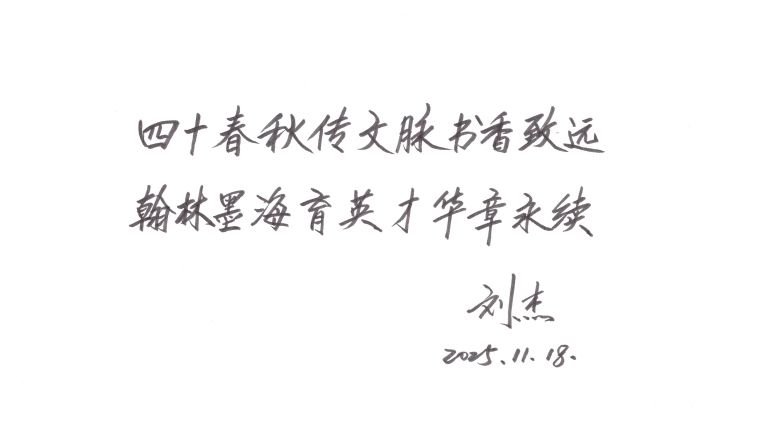 四十春秋传文脉书香致远
翰林墨海育英才华章永续
刘杰
2025.11.18.